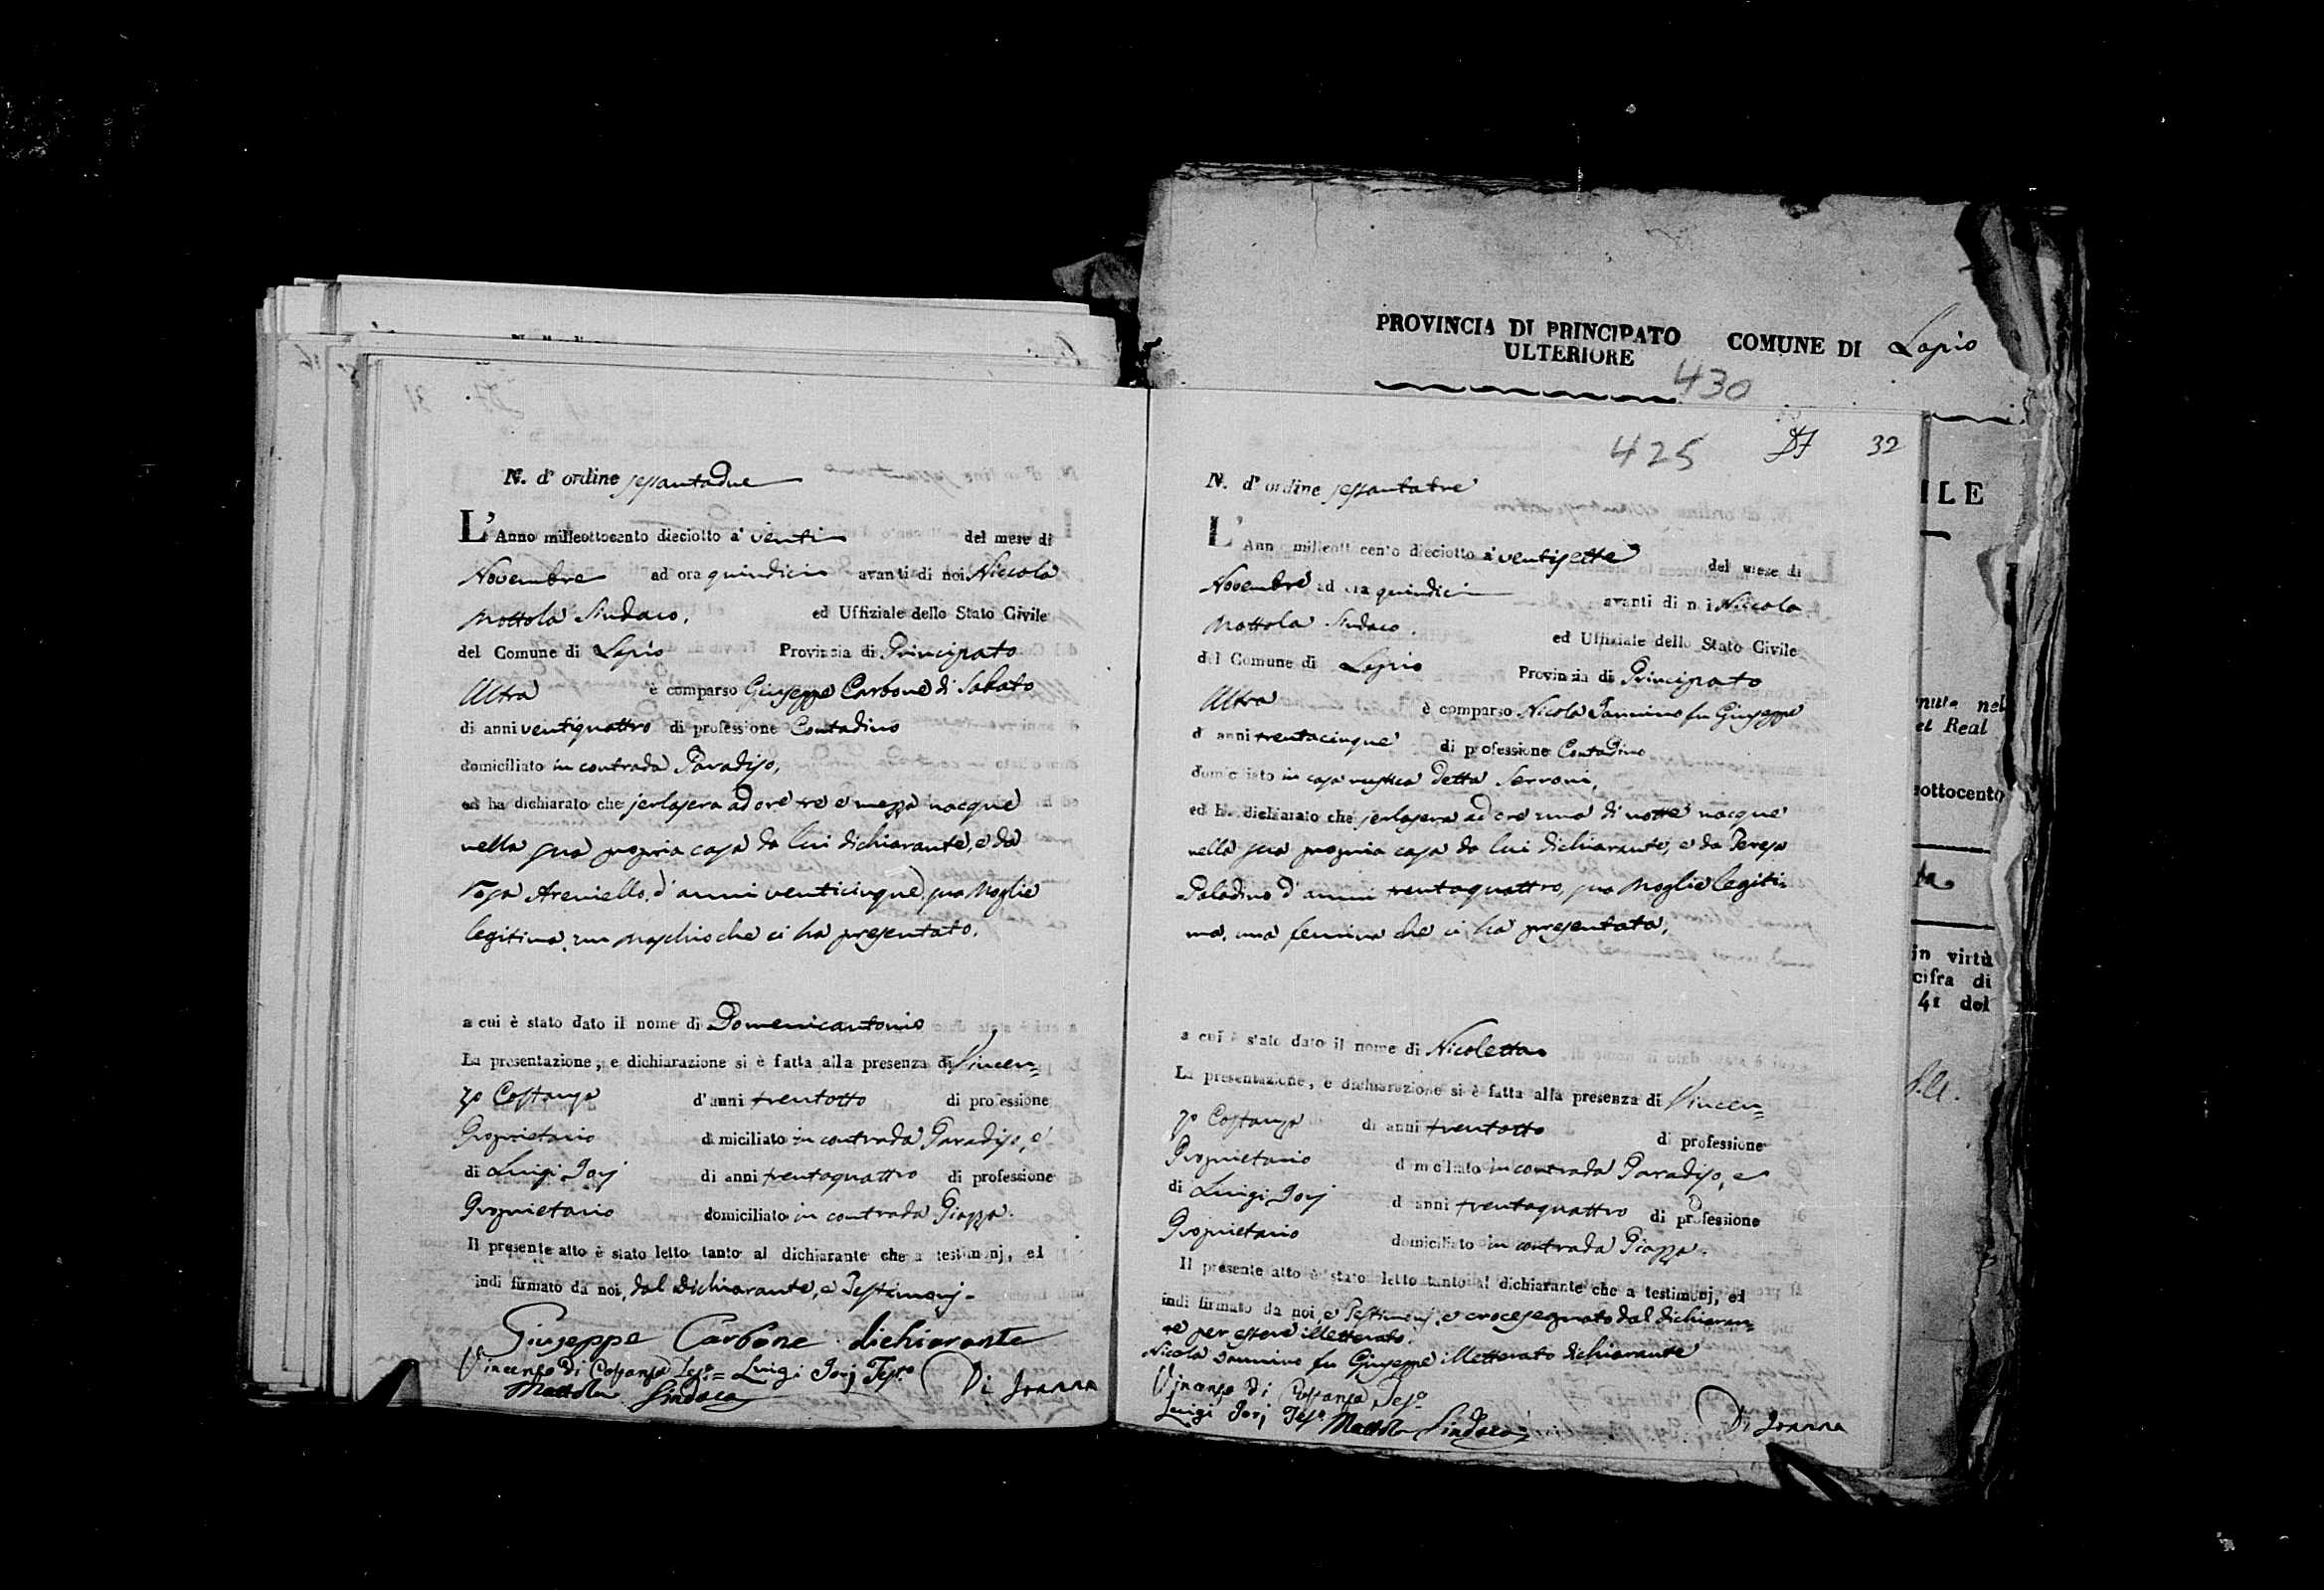 N. d'ordine sessantadue
L'Anno milleottocento dieciotto a' venti del mese di
Novembre ad ora quindici avanti di noi Niccola
Mottola Sindaco, ed Uffiziale dello Stato Civile
del Comune di Lapio Provincia di Principato
Ultra è comparso Giuseppe Carbone di Sabato
di anni ventiquattro di professione Contadino
domiciliato in contrada Paradiso,
ed ha dichiarato che jerlasera ad ore tre e mezza nacque
nella sua propria casa da lui dichiarante, e da
Rosa Areniello, d'anni venticinque, sua Moglie
legitima, un maschio che ci ha presentato.
a cui è stato dato il nome di Domenicantonio
La presentazione, e dichiarazione si è fatta alla presenza di Vincen=
zo Costanza d'anni trentotto di professione
Proprietario domiciliato in contrada Paradiso, e
di Luigi Jorj di anni trentaquattro di professione
Proprietario domiciliato in contrada Piazza.
Il presente atto è stato letto tanto al dichiarante che a testimonj, ed
indi firmato da noi, dal Dichiarante, e Testimonj.
Giuseppe Carbone dichiarante
Vincenzo Di Costanza Tes.o = Luigi Jorj Tes.o
Mottola Sindaco Di Joanna
PROVINCIA DI PRINCIPATO COMUNE DI Lapio
ULTERIORE
430
425 32
N. d'ordine sessantatre
L'Anno milleottocento dieciotto a' ventisette del mese di
Novembre ad ora quindici avanti di noi Niccola
Mottola Sindaco, ed Uffiziale dello Stato Civile
del Comune di Lapio Provincia di Principato
Ultra è comparso Nicola Iannino fu Giuseppe
di anni trentacinque di professione Contadino
domiciliato in casa rustica detta Serroni,
ed ha dichiarato che jerlasera ad ore una di notte nacque
nella sua propria casa da lui dichiarante, e da Teresa
Paladino d'anni trentaquattro, sua Moglie legiti=
ma, una femina che ci ha presentata,
a cui è stato dato il nome di Nicoletta
La presentazione, e dichiarazione si è fatta alla presenza di Vincen=
zo Costanza di anni trentotto di professione
Proprietario domiciliato in contrada Paradiso, e
di Luigi Jorj di anni trentaquattro di professione
Proprietario domiciliato in contrada Piazza.
Il presente atto è stato letto tanto al dichiarante che a testimonj, ed
indi firmato da noi, e Testimonj, e crocesegnato dal dichiaran=
te per essere illetterato.
Nicola Iannino fu Giuseppe illetterato dichiarante
Vincenzo Di Costanza Tes.o
Luigi Jorj Tes.o Mottola Sindaco Di Joanna
ILE
nuta nel
el Real
ottocento
in virtù
cifra di
41 del